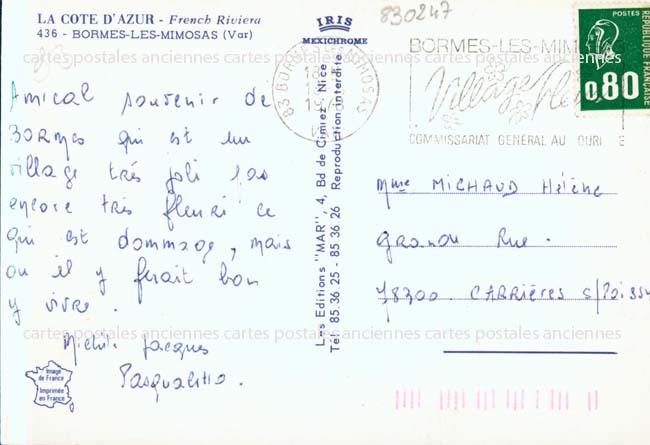 LA COTE D'AZUR - French Riviera
436 - BORMES-LES-MIMOSAS (Var)
IRIS
MEXICHROME
830247
BORMES-LES-MIMOSAS
Village
COMMISSARIAT GÉNÉRAL AU
POSTES
RÉPUBLIQUE FRANÇAISE
0,80
83 BORMES MIMOSAS
cartes postales anciennes cartes postales anciennes cartes postales anciennes
Amical souvenir de
Bormes qui est un
village très joli pas
encore très fleuri ce
qui est dommage, mais
ou il y ferait bon
y vivre.
Jacques
Les Editions "MAR", 4, Bd de Cimiez, Nice
Tél: 85.36 25 - 85.36 26 Reproduction interdite
Mme MICHAUD Hélène
Grande Rue.
78300. CARRIÈRES S/Poissy
cartes postales anciennes cartes postales anciennes cartes postales anciennes
Image
de France
Imprimée
en France